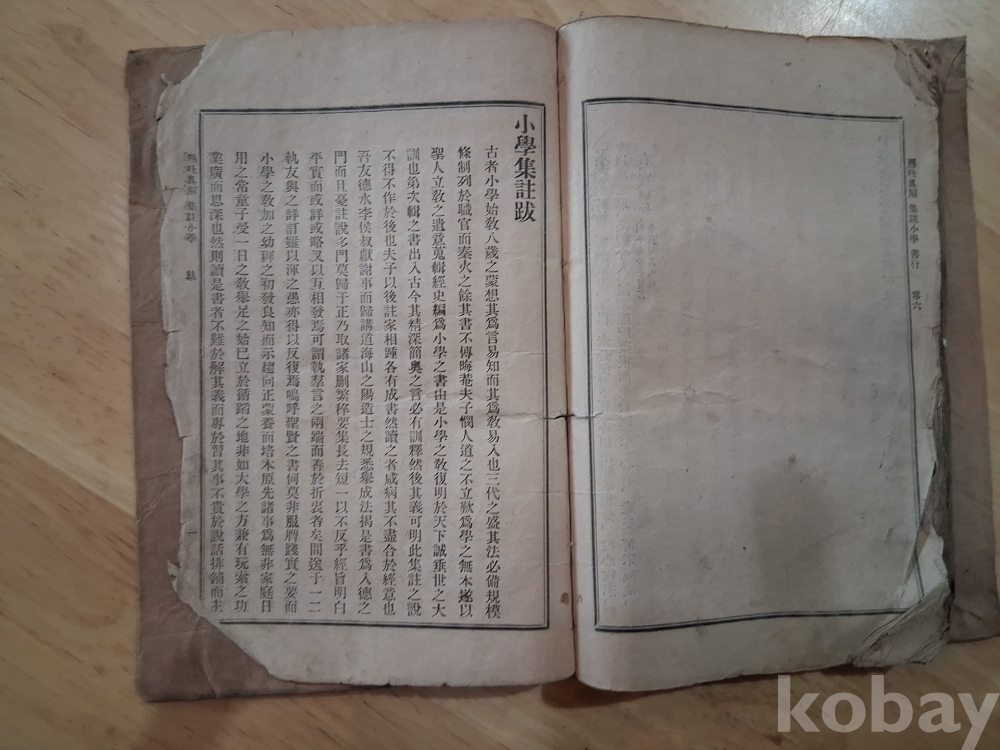 懸吐具解 集註小學 書行 零六
小學集註跋
古者小學始敎八歲之蒙想其爲言易知而其爲敎易入也三代之盛其法必備規模
條制列於職官而秦火之餘其書不傳晦菴夫子憫人道之不立歎爲學之無本遂以
聖人立敎之遺意蒐輯經史編爲小學之書由是小學之敎復明於天下誠垂世之大
訓也第次輯之書出入古今其精深簡奧之言必有訓釋然後其義可明此集註之說
不得不作於後也夫子以後註家相踵各有成書然讀之者咸病其不盡合於經意也
吾友德水李侯叔獻謝事而歸講道海山之陽造士之規悉擧成法揭是書爲入德之
門而且憂註說多門莫歸于正乃取諸家刪繁稡要集長去短一以不反乎經旨明白
平實而或詳或略又以互相發焉可謂執羣言之兩端而善於折衷者矣間送于一二
執友與之詳訂雖以渾之愚亦得以反復焉嗚呼聖賢之書何莫非服膺踐實之要而
小學之敎加之幼穉之初發良知而示趨向正蒙養而培本原先諸事爲無非家庭日
用之常童子受一日之敎擧足之始已立於循蹈之地非如大學之方兼有玩索之功
業廣而思深也然則讀是書者不難於解其義而專於習其事不貴於說話排鋪而主
集註小學 跋 一
kobay